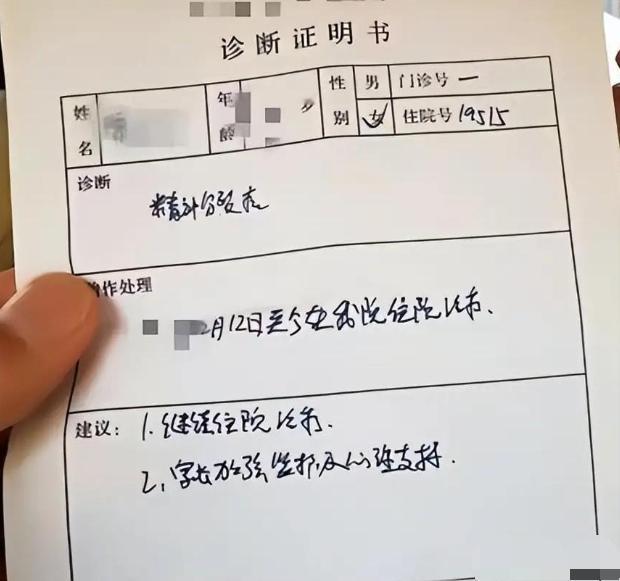 诊断证明书
姓名 年龄 岁 性别 男 女 门诊号 一
住院号 19515
诊断
精神分裂症
作处理
2月12日至今在我院住院治疗.
建议: 1. 继续住院治疗.
2. 家长加强监护及心理支持.